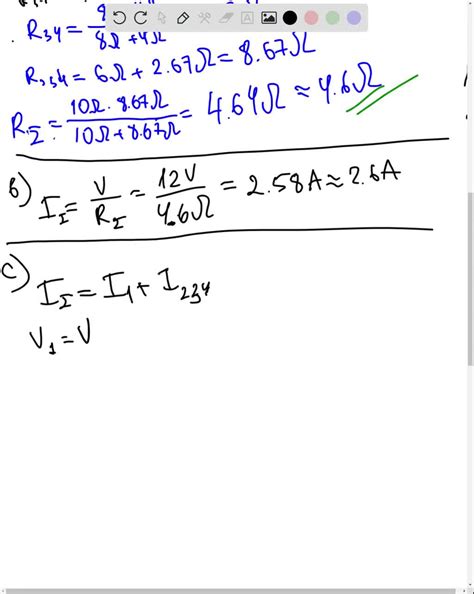 R₃₄ = 8 / 8Ω + 4Ω
R₂₃₄ = 6Ω + 2.67Ω = 8.67Ω
R_Σ = 10Ω · 8.67Ω / 10Ω + 8.67Ω = 4.64Ω ≈ 4.6Ω
b) I_Σ = V / R_Σ = 12V / 4.6Ω = 2.58A ≈ 2.6A
c) I_Σ = I₁ + I₂₃₄
V₁ = V